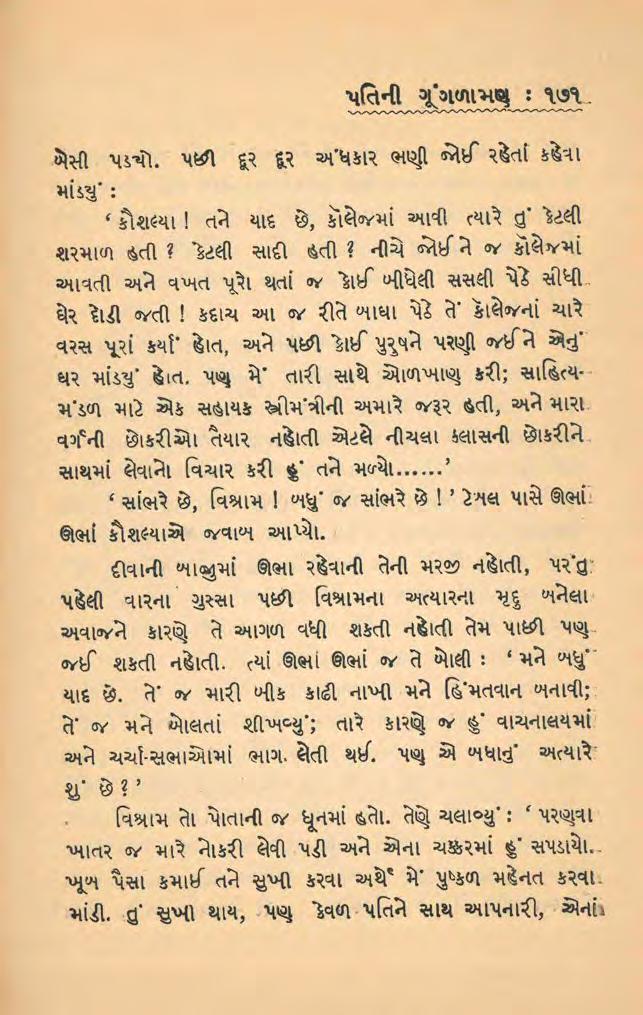 પતિની ગૂંગળામણ : ૧૭૧
બેસી પડ્યો. પછી દૂર દૂર અંધકાર ભણી જોઈ રહેતાં કહેવા
માંડ્યું :
‘ કૌશલ્યા ! તને યાદ છે, કૉલેજમાં આવી ત્યારે તું કેટલી
શરમાળ હતી ? કેટલી સાદી હતી ? નીચે જોઈ ને જ કૉલેજમાં
આવતી અને વખત પૂરો થતાં જ કોઈ બીધેલી સસલી પેઠે સીધી
ઘેર દોડી જતી ! કદાચ આ જ રીતે બાઘા પેઠે તેં કૉલેજનાં ચારે
વરસ પૂરાં કર્યાં હોત, અને પછી કોઈ પુરુષને પરણી જઈ ને એનું
ઘર માંડ્યું હોત. પણ મેં તારી સાથે ઓળખાણ કરી; સાહિત્ય-
મંડળ માટે એક સહાયક સ્ત્રીમંત્રીની અમારે જરૂર હતી, અને મારા
વર્ગની છોકરીઓ તૈયાર નહોતી એટલે નીચલા ક્લાસની છોકરીને
સાથમાં લેવાનો વિચાર કરી હું તને મળ્યો......’
‘ સાંભરે છે, વિશ્રામ ! બધું જ સાંભરે છે ! ’ ટેબલ પાસે ઊભાં
ઊભાં કૌશલ્યાએ જવાબ આપ્યો.
દીવાની બાજુમાં ઊભા રહેવાની તેની મરજી નહોતી, પરંતુ
પહેલી વારના ગુસ્સા પછી વિશ્રામના અત્યારના મૃદુ બનેલા
અવાજને કારણે તે આગળ વધી શકતી નહોતી તેમ પાછી પણ
જઈ શકતી નહોતી. ત્યાં ઊભાં ઊભાં જ તે બોલી : ‘ મને બધું
યાદ છે. તેં જ મારી બીક કાઢી નાખી મને હિંમતવાન બનાવી;
તેં જ મને બોલતાં શીખવ્યું; તારે કારણે જ હું વાચનાલયમાં
અને ચર્ચા-સભાઓમાં ભાગ લેતી થઈ. પણ એ બધાનું અત્યારે
શું છે ? ’
વિશ્રામ તો પોતાની જ ધૂનમાં હતો. તેણે ચલાવ્યું : ‘ પરણવા
ખાતર જ મારે નોકરી લેવી પડી અને એના ચક્કરમાં હું સપડાયો.
ખૂબ પૈસા કમાઈ તને સુખી કરવા અર્થે મેં પુષ્કળ મહેનત કરવા
માંડી. તું સુખી થાય, પણ કેવળ પતિને સાથ આપનારી, એનાં